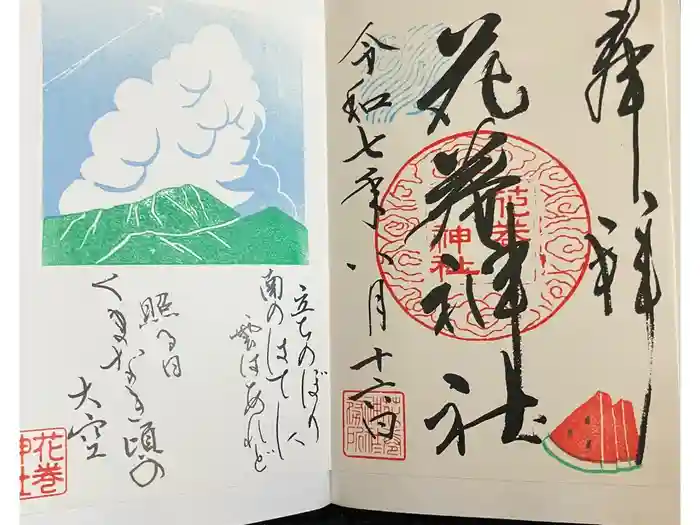 奉拝
花巻神社
花巻
神社
令和七年八月十六日
立ちのぼり
南のはてに
雲はあれど
照る日
くまなき頃の
大空
花巻
神社